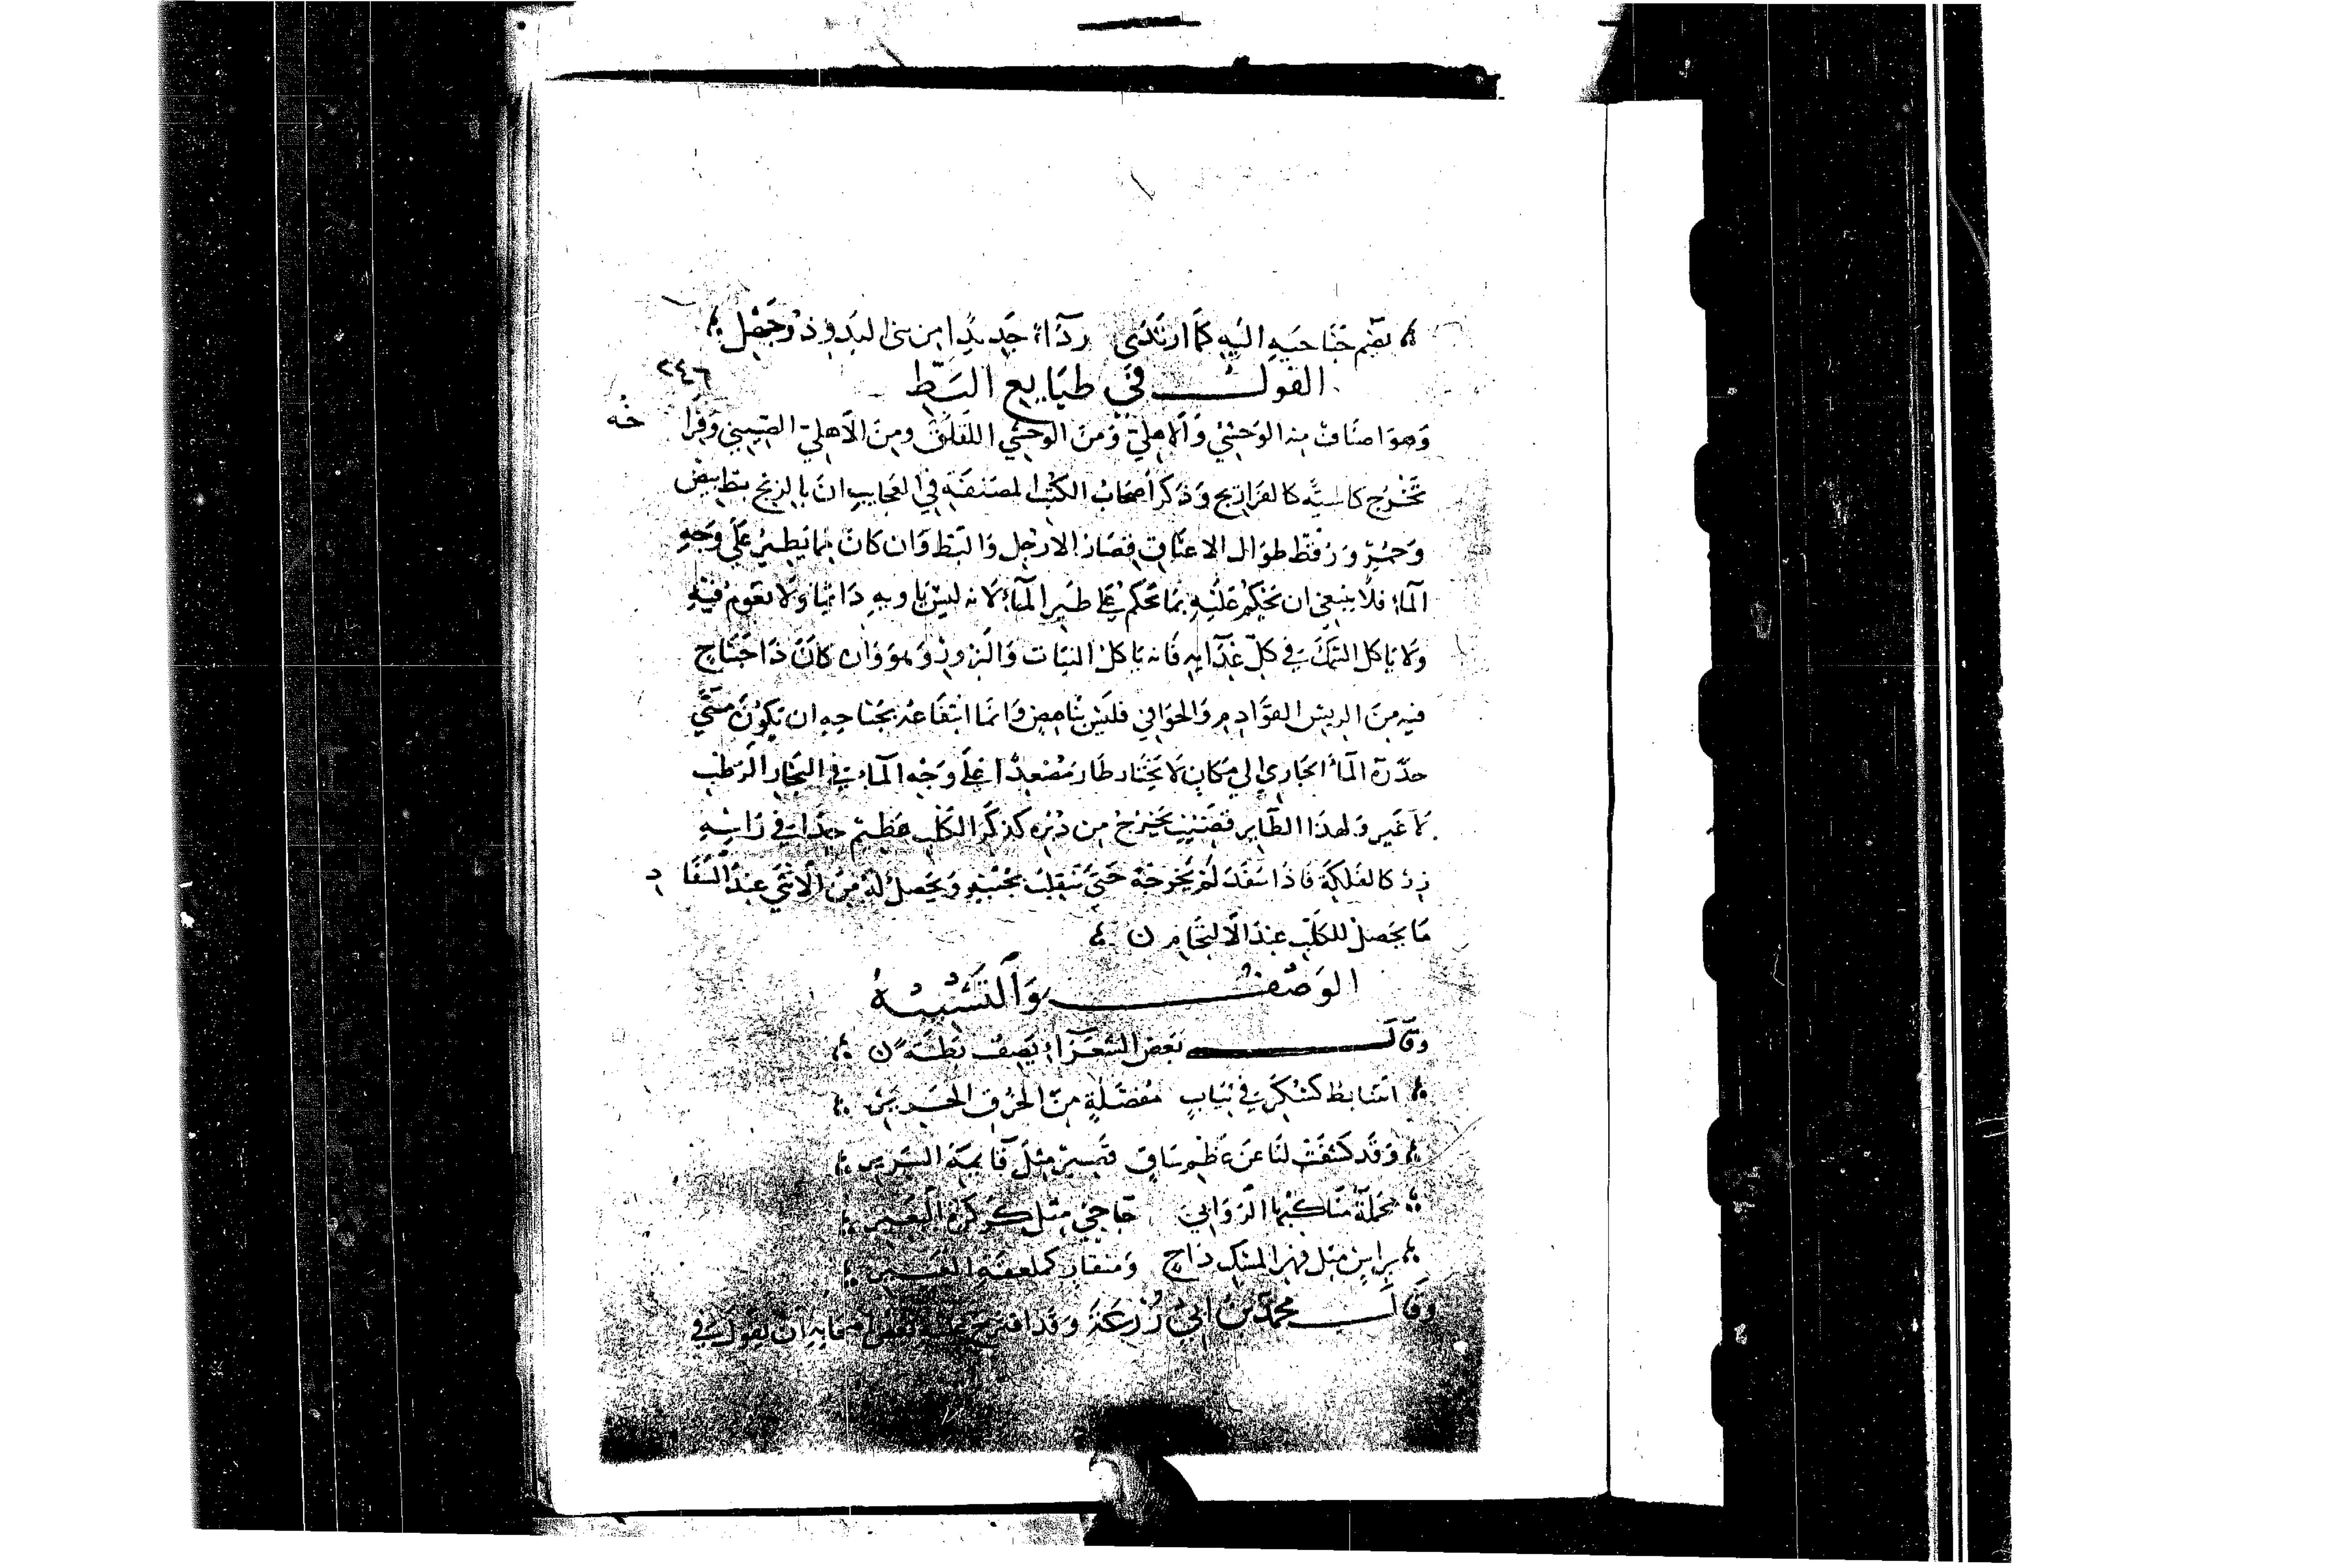 يضم جناحيه اليه كما ارتدى رداء جديدا من بنى البدو ذو جهل
٢٤٦
القول في طبايع البط
وهو اصناف منه الوحشي والاهلي ومن الوحشي اللقلق ومن الاهلي الصيني وفرا خه
تخرج كاسية كالفراريج وذكر اصحاب الكتب المصنفة في العجايب ان بالزنج بط بيض
وحمر ورقط طوال الاعناق قصار الارجل والبط وان كان مما يطير على وجه
الماء فلا ينبغي ان نحكم عليه بما نحكم على طير الماء لانه ليس ياويه دائما ولا يقوم فيه
ولا ياكل السمك في كل غذايه فانه ياكل النبات والبزور وهو وان كان ذا جناح
فيه من الريش القوادم والخوافي فليس بناهض وانما انتفاعه بجناحيه ان يكون متى
حدره الماء الجاري الى مكان لا يختار طار مصعدا على وجه الماء في البخار الرطب
لا غير ولهذا الطاير قضيب يخرج من دبره كذكر الكلب عظيم جدا في راسه
زر كالفلكة فاذا سفد لم يخرجه حتى ينقلب لجنبه ويحصل له من الانثى عند السفا د
ما يحصل للكلب عند الالتحام ن
الوصف والتشبيه
وقال بعض الشعراء يصف بطة ن
اتتنا بط كسكر في ثياب مفصلة من الحرف الحرير
وقد كشفت لنا عن عظم ساق قصير مثل قايمة السرير
محملة مناكبها الروابي مثل كركرة البعير
براس مثل فهر المسك داج ومنقار كملعقة
وقال محمد بن ابي زرعة وقد اقترح عليه بعض اصحابه ان يقول في